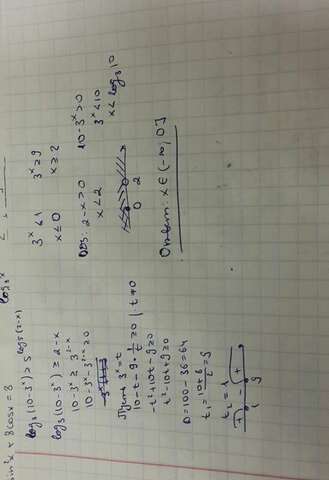 sin²x + 8cosx = 8
log₃(10-3ˣ) ≥ 5^log₅(2-x)
log₃(10-3ˣ) ≥ 2-x
10-3ˣ ≥ 3²⁻ˣ
10-3ˣ-3²⁻ˣ ≥ 0
Пусть 3ˣ = t
10-t-9·1/t ≥ 0 | t≠0
-t²+10t-9 ≥ 0
t²-10t+9 ≥ 0
D=100-36=64
t₁ = 10+8/2 = 9
t₂ = 1
+ - +
1 9
3ˣ ≤ 1 3ˣ ≥ 9
x ≤ 0 x ≥ 2
ОДЗ: 2-x > 0 10-3ˣ > 0
x < 2 3ˣ < 10
x < log₃10
0 2
Ответ: x ∈ (-∞; 0]